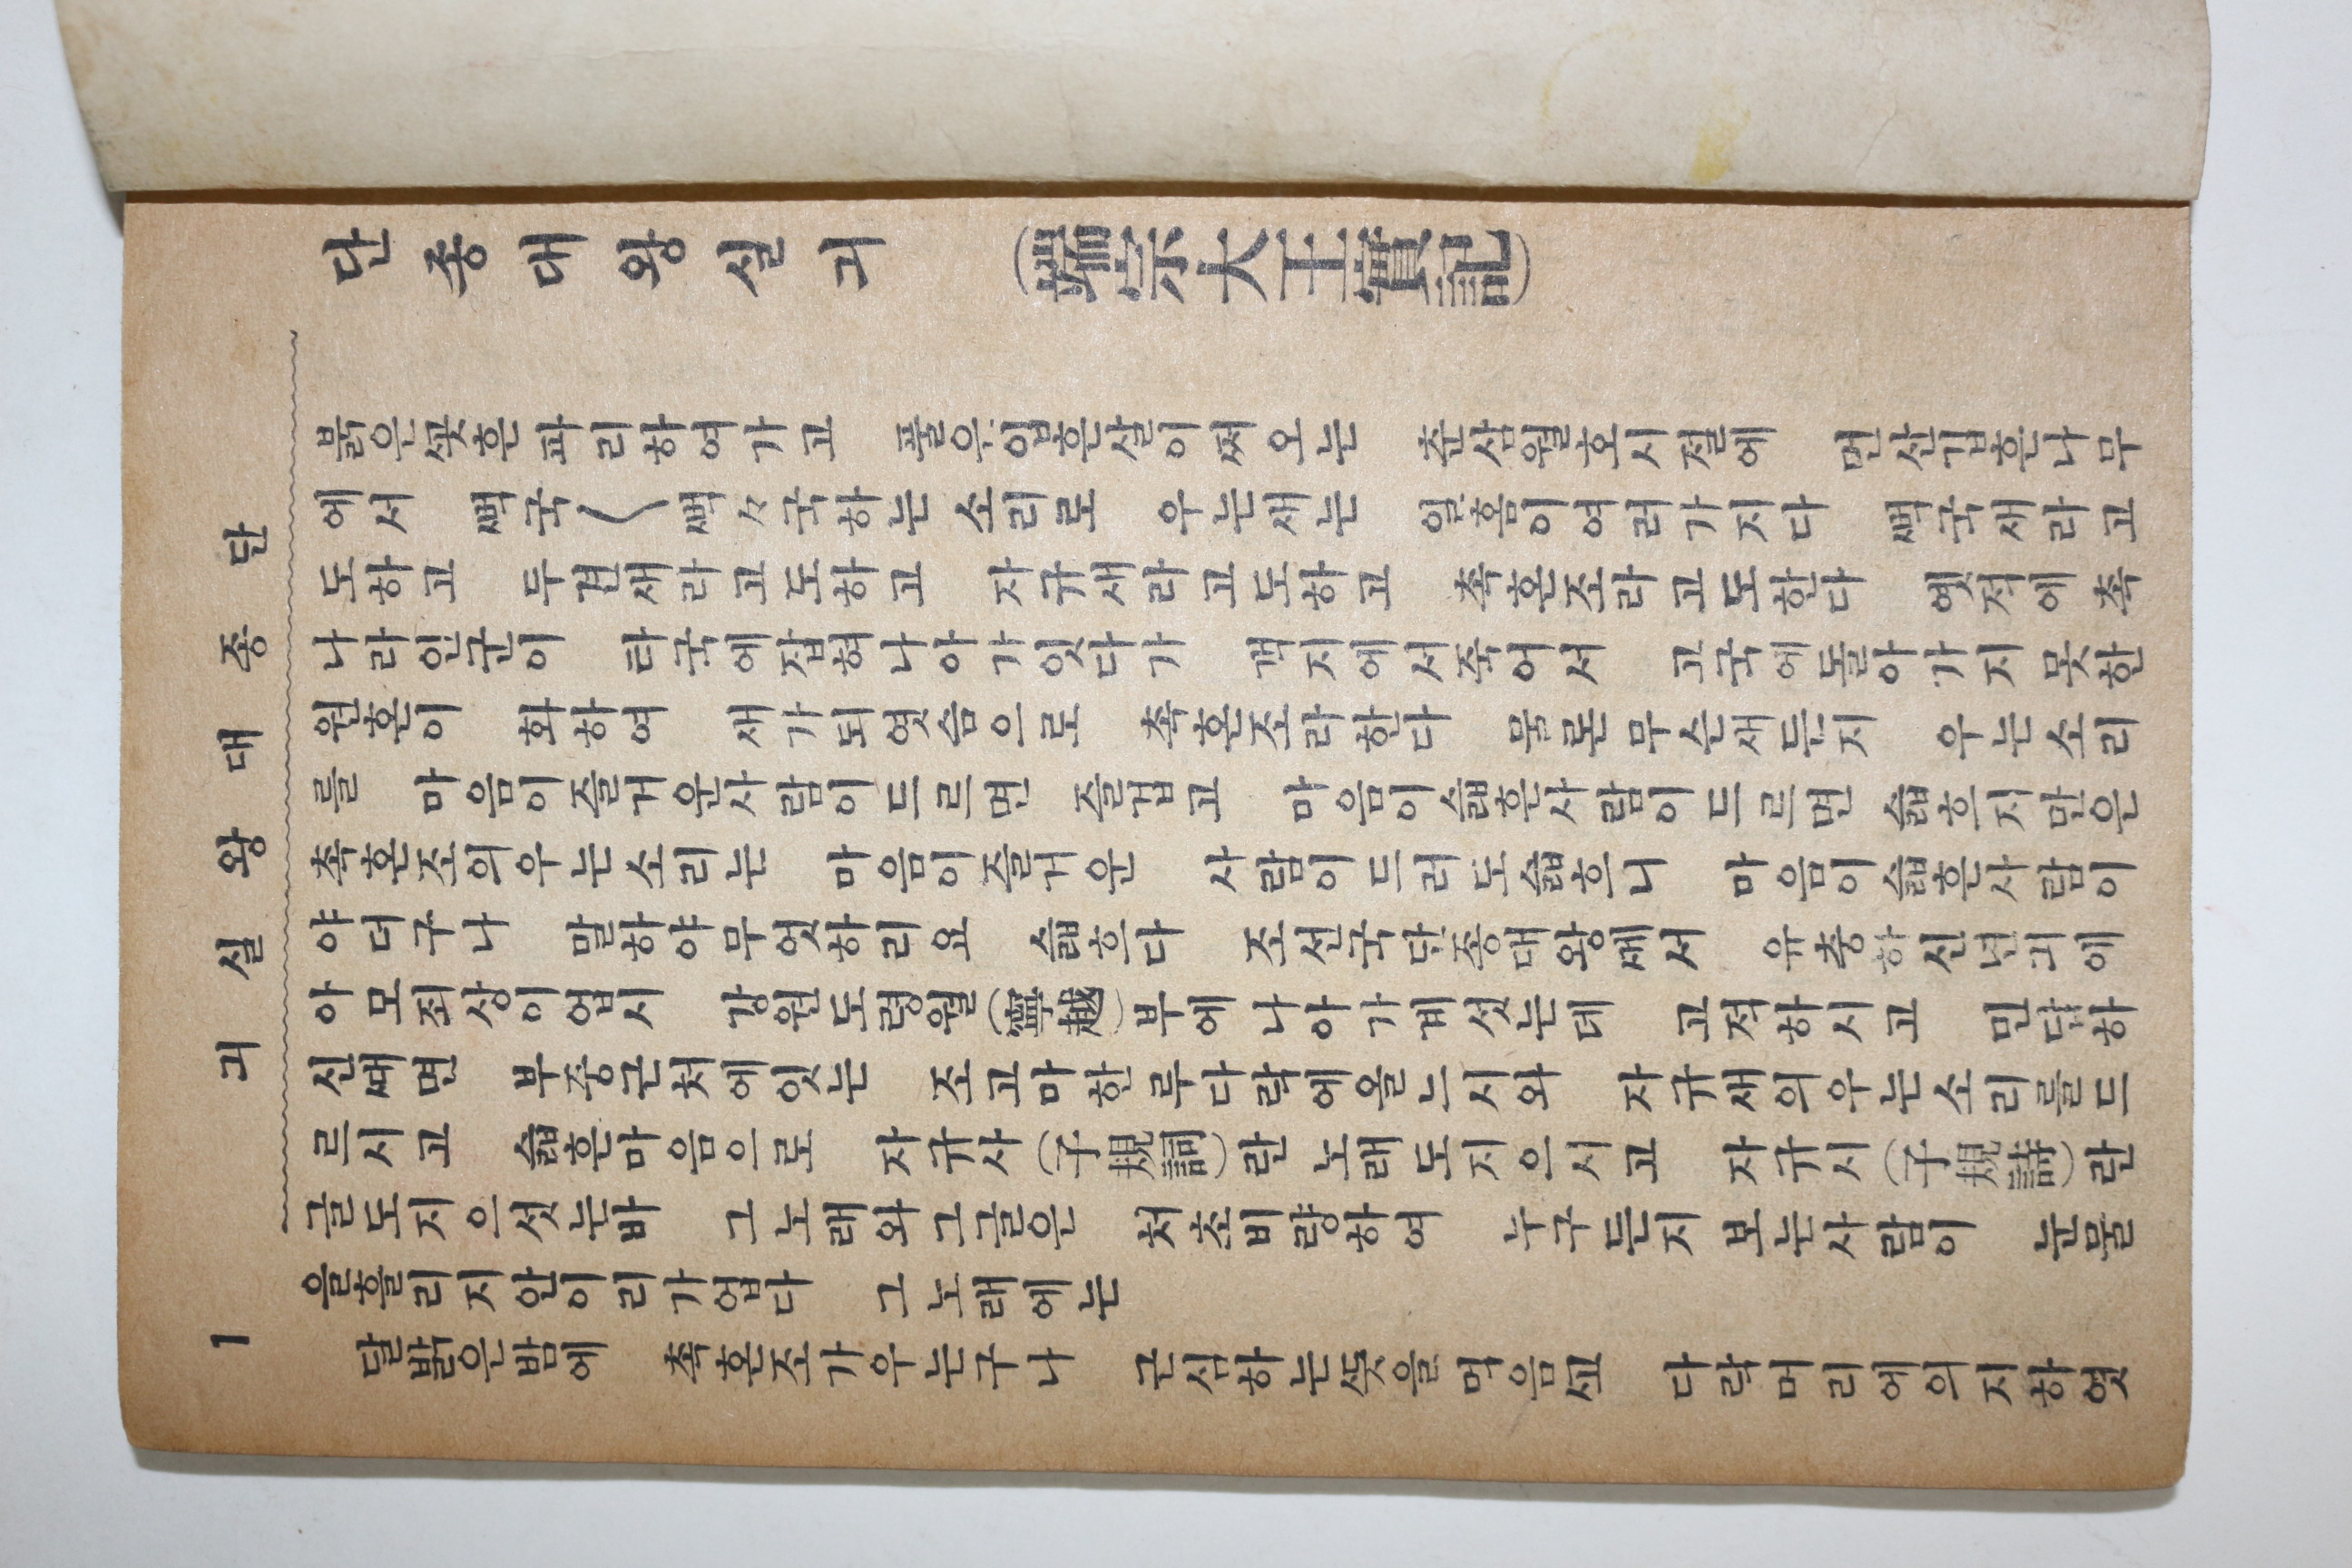 단종대왕실긔 (端宗大王實記)
붉은쏫흔파리하여가고 풀은입흔살이써오는 춘삼월호시절에 먼산깁흔나무
에서 쌕국〱쌕々국하는소리로 우는새는 일홈이여러가지다 쌕국새라고
도하고 두견새라고도하고 자규새라고도하고 촉혼조라고도한다 옛적에촉
나라인군이 타국에잡혀나아가잇다가 객지에서죽어서 고국에돌아가지못한
원혼이 화하여 새가되엿슴으로 촉혼조라한다 물론무슨새든지 우는소리
를 마음이즐거운사람이드르면 즐겁고 마음이슯흔사람이드르면 슯흐지만은
촉혼조의우는소리는 마음이즐거운 사람이드러도슯흐니 마음이슯흔사람이
야더구나 말하야무엇하리요 슯흐다 조선국단종대왕쎄서 유충하신년긔에
아모죄상이업시 강원도령월(寧越)부에나아가계섯는데 고적하시고 민답하
신쌔면 부중근처에잇는 조고마한루다락에올느시와 자규새의우는소리를드
르시고 슯흔마음으로 자규사(子規詞)란 노래도지으시고 자규시(子規詩)란
글도지으섯는바 그노래와그글은 처초비량하여 누구든지보는사람이 눈물
을흘리지안이리가업다 그노래에는
달밝은밤에 촉혼조가우는구나 근심하는쯧을먹음쏘 다락머리에의지하엿
단종대왕실긔
1